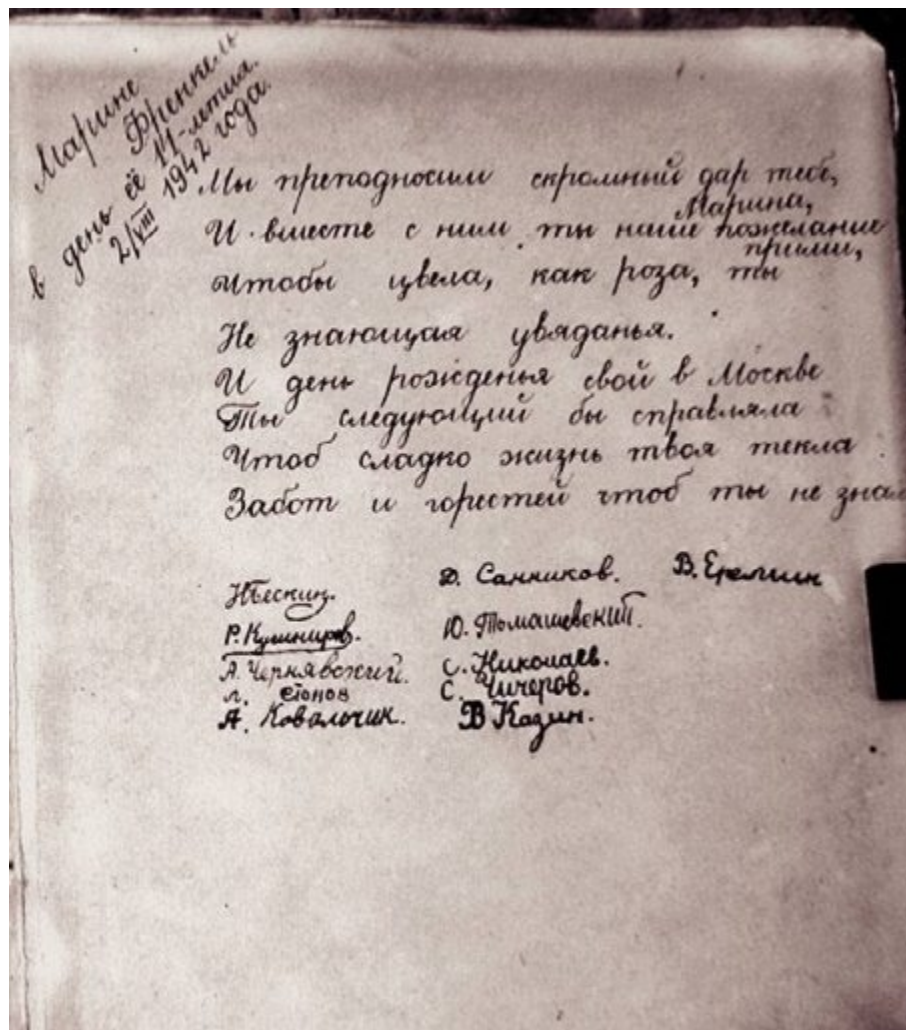 Марине
Френкель
в день её 11-летия.
2/VIII 1942 года.
Мы преподносим скромный дар тебе,
Марина,
И вместе с ним ты наше пожелание
приими,
Чтобы цвела, как роза, ты
Не знающая увяданья.
И день рожденья свой в Москве
Ты следующий бы справляла
Чтоб сладко жизнь твоя текла
Забот и горестей чтоб ты не знал
Д. Санников. В. Еремин
Р. Кушниров. Ю. Томашевский.
А. Чернявский. С. Николаев.
Л. Стонов С. Чичеров.
А. Ковальчик. В Казин.